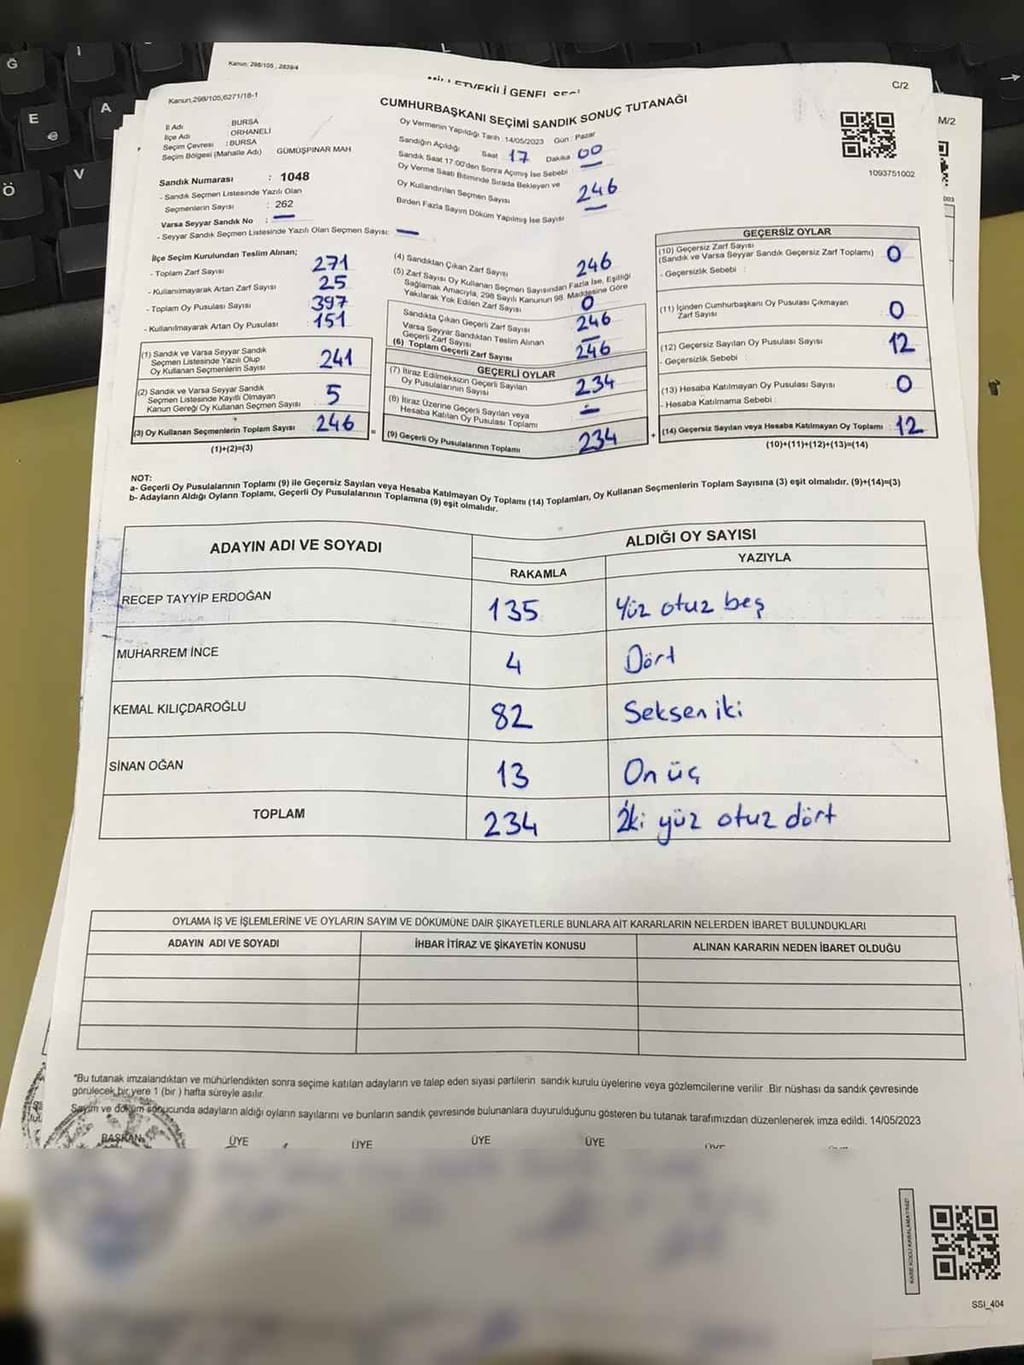 Kanun; 298/105 , 2839/4
Kanun,298/105,6271/18-1
C/2
M/2
CUMHURBAŞKANI SEÇİMİ SANDIK SONUÇ TUTANAĞI
İl Adı : BURSA
İlçe Adı : ORHANELİ
Seçim Çevresi : BURSA
Seçim Bölgesi (Mahalle Adı) GÜMÜŞPINAR MAH
Sandık Numarası : 1048
- Sandık Seçmen Listesinde Yazılı Olan
Seçmenlerin Sayısı : 262
Varsa Seyyar Sandık No : —
- Seyyar Sandık Seçmen Listesinde Yazılı Olan Seçmen Sayısı: —
Oy Vermenin Yapıldığı Tarih :14/05/2023 Gün : Pazar
Sandığın Açıldığı Saat 17 Dakika 00
Sandık Saat 17.00'den Sonra Açılmış İse Sebebi —
Oy Verme Saati Bitiminde Sırada Bekleyen ve
Oy Kullandırılan Seçmen Sayısı 246
Birden Fazla Sayım Döküm Yapılmış İse Sayısı —
1093751002
İlçe Seçim Kurulundan Teslim Alınan;
- Toplam Zarf Sayısı 271
- Kullanılmayarak Artan Zarf Sayısı 25
- Toplam Oy Pusulası Sayısı 397
- Kullanılmayarak Artan Oy Pusulası 151
(1) Sandık ve Varsa Seyyar Sandık
Seçmen Listesinde Yazılı Olup
Oy Kullanan Seçmenlerin Sayısı 241
(2) Sandık ve Varsa Seyyar Sandık
Seçmen Listesinde Kayıtlı Olmayan
Kanun Gereği Oy Kullanan Seçmen Sayısı 5
(3) Oy Kullanan Seçmenlerin Toplam Sayısı 246
(1)+(2)=(3)
(4) Sandıktan Çıkan Zarf Sayısı 246
(5) Zarf Sayısı Oy Kullanan Seçmen Sayısından Fazla İse, Eşitliği
Sağlamak Amacıyla, 298 Sayılı Kanunun 98. Maddesine Göre
Yakılarak Yok Edilen Zarf Sayısı 0
Sandıkta Çıkan Geçerli Zarf Sayısı 246
Varsa Seyyar Sandıktan Teslim Alınan
Geçerli Zarf Sayısı —
(6) Toplam Geçerli Zarf Sayısı 246
GEÇERLİ OYLAR
(7) İtiraz Edilmeksizin Geçerli Sayılan
Oy Pusulalarının Sayısı 234
(8) İtiraz Üzerine Geçerli Sayılan veya
Hesaba Katılan Oy Pusulası Toplamı —
= (9) Geçerli Oy Pusulalarının Toplamı 234
GEÇERSİZ OYLAR
(10) Geçersiz Zarf Sayısı
(Sandık ve Varsa Seyyar Sandık Geçersiz Zarf Toplamı) 0
- Geçersizlik Sebebi :
(11) İçinden Cumhurbaşkanı Oy Pusulası Çıkmayan
Zarf Sayısı 0
(12) Geçersiz Sayılan Oy Pusulası Sayısı 12
- Geçersizlik Sebebi :
(13) Hesaba Katılmayan Oy Pusulası Sayısı 0
- Hesaba Katılmama Sebebi :
+ (14) Geçersiz Sayılan veya Hesaba Katılmayan Oy Toplamı 12
(10)+(11)+(12)+(13)=(14)
NOT:
a- Geçerli Oy Pusulalarının Toplamı (9) ile Geçersiz Sayılan veya Hesaba Katılmayan Oy Toplamı (14) Toplamları, Oy Kullanan Seçmenlerin Toplam Sayısına (3) eşit olmalıdır. (9)+(14)=(3)
b- Adayların Aldığı Oyların Toplamı, Geçerli Oy Pusulalarının Toplamına (9) eşit olmalıdır.
ADAYIN ADI VE SOYADI ALDIĞI OY SAYISI
RAKAMLA YAZIYLA
RECEP TAYYİP ERDOĞAN 135 Yüz otuz beş
MUHARREM İNCE 4 Dört
KEMAL KILIÇDAROĞLU 82 Seksen iki
SİNAN OĞAN 13 On üç
TOPLAM 234 İki yüz otuz dört
OYLAMA İŞ VE İŞLEMLERİNE VE OYLARIN SAYIM VE DÖKÜMÜNE DAİR ŞİKAYETLERLE BUNLARA AİT KARARLARIN NELERDEN İBARET BULUNDUKLARI
ADAYIN ADI VE SOYADI İHBAR İTİRAZ VE ŞİKAYETİN KONUSU ALINAN KARARIN NEDEN İBARET OLDUĞU
*Bu tutanak imzalandıktan ve mühürlendikten sonra seçime katılan adayların ve talep eden siyasi partilerin sandık kurulu üyelerine veya gözlemcilerine verilir .Bir nüshası da sandık çevresinde
görülecek bir yere 1 (bir ) hafta süreyle asılır.
Sayım ve döküm sonucunda adayların aldığı oyların sayılarını ve bunların sandık çevresinde bulunanlara duyurulduğunu gösteren bu tutanak tarafımızdan düzenlenerek imza edildi. 14/05/2023
BAŞKAN ÜYE ÜYE ÜYE ÜYE
SSI_404